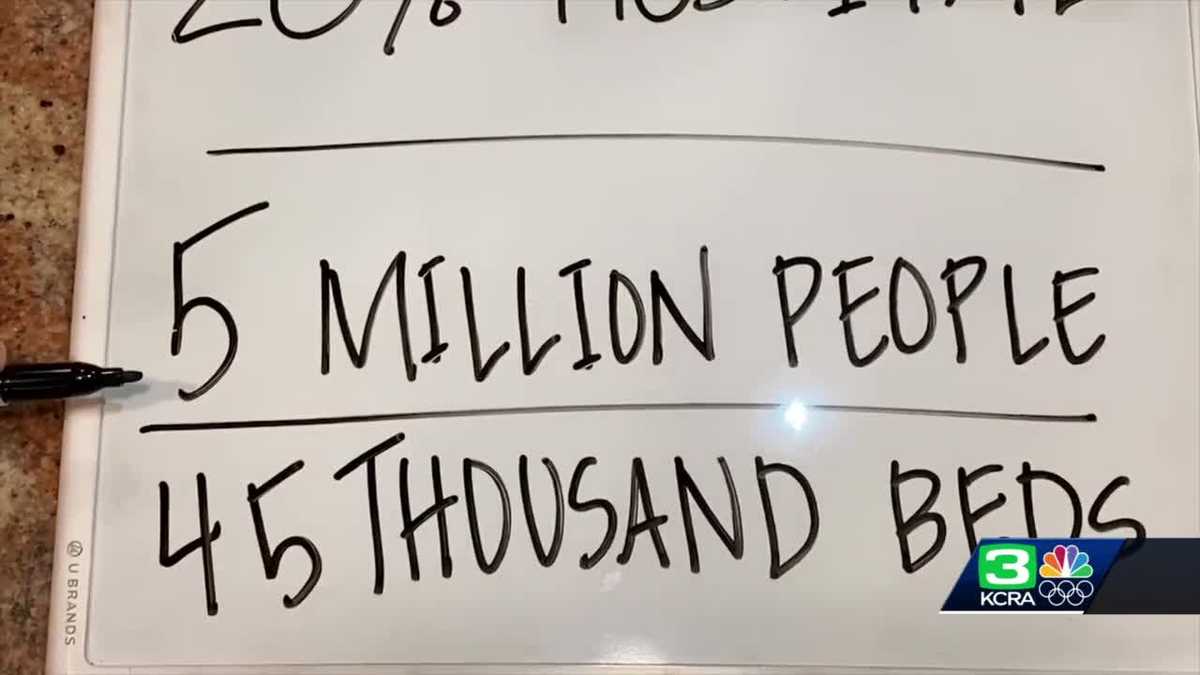 20% HOSPITAL
5 MILLION PEOPLE
45 THOUSAND BEDS
3
KCRA
U BRANDS